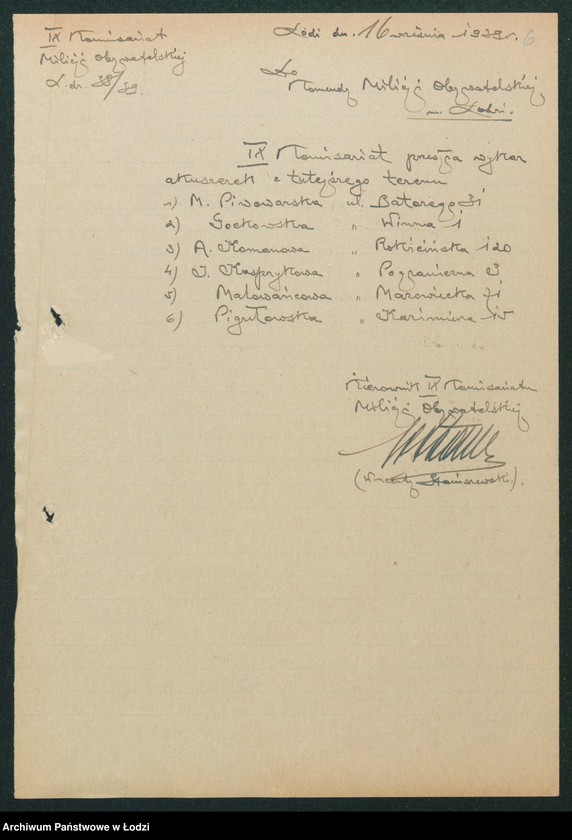 IX Komisariat
Milicji Obywatelskiej
L. dz. 38/39.
Łódź dn. 16 września 1939 r. 6
Do
Komendy Milicji Obywatelskiej,
w Łodzi.
IX Komisariat przesyła wykaz
akuszerek z tutejszego terenu
1) M. Piwowarska ul. Batorego 31
2) Gockowska „ Winna 1
3) A. Komanowa „ Rokicińska 120
4) J. Kasprzykowa „ Pograniczna
5) Malowańcowa „ Mazowiecka
6) Pigułowska „ Kazimierza
Kierownik IX Komisariatu
Milicji Obywatelskiej
(Wincenty Staniszewski).
Archiwum Państwowe w Łodzi